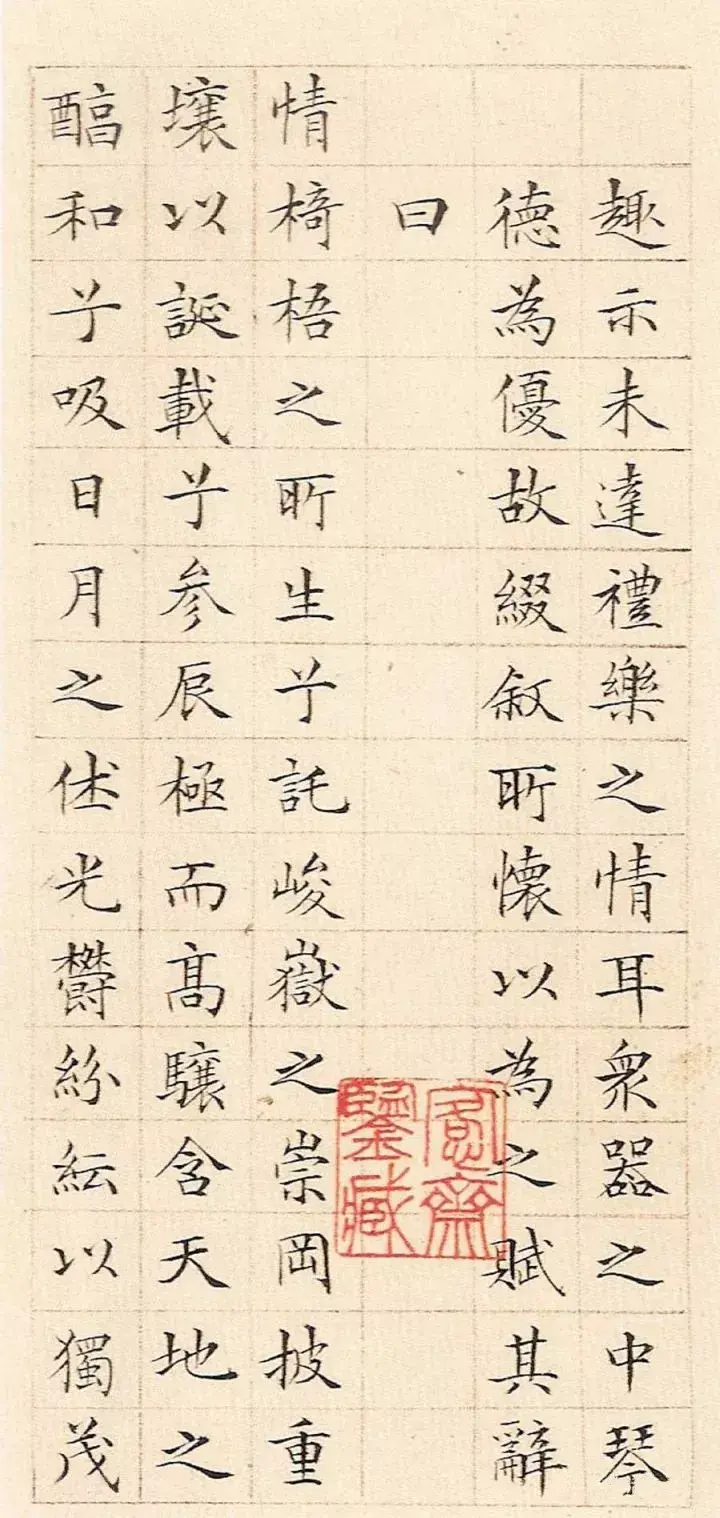 趣示未達禮樂之情耳眾器之中琴
德為優故綴叙所懷以為之賦其辭
曰
情椅梧之所生兮託峻嶽之崇岡披重
壤以誕載兮参辰極而髙驤含天地之
醕和兮吸日月之休光欝紛紜以獨茂
齋鑒藏